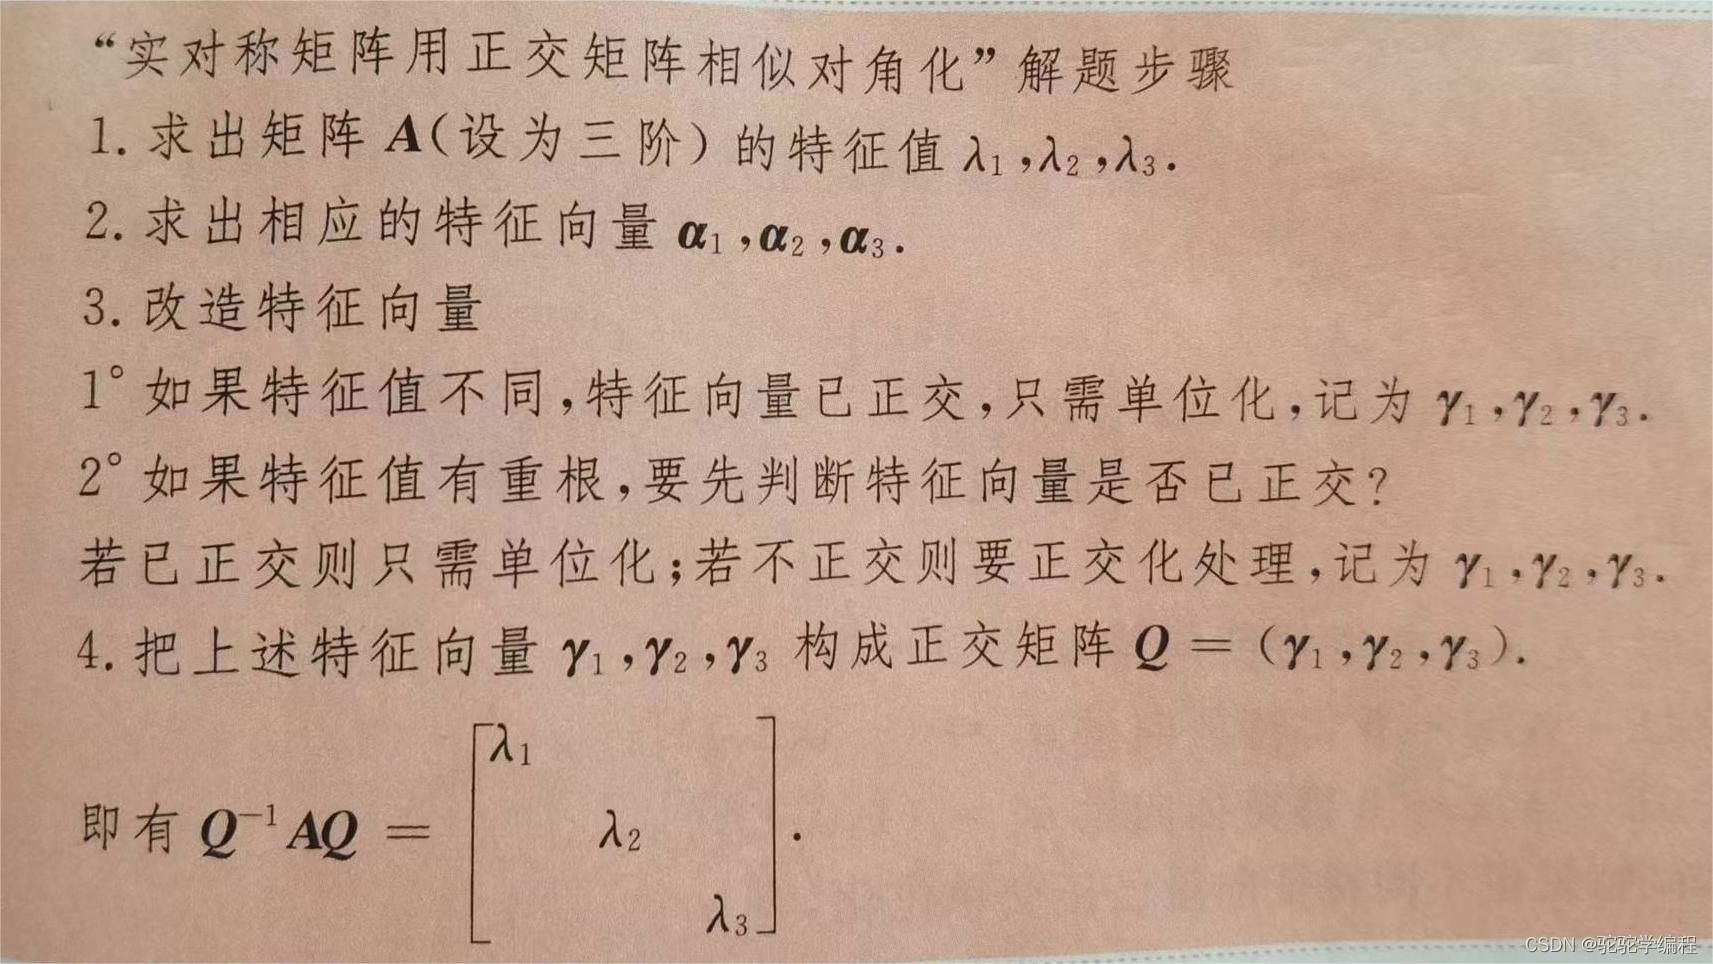 “实对称矩阵用正交矩阵相似对角化”解题步骤
1. 求出矩阵 A(设为三阶) 的特征值 λ₁,λ₂,λ₃.
2. 求出相应的特征向量 α₁,α₂,α₃.
3. 改造特征向量
1° 如果特征值不同,特征向量已正交,只需单位化,记为 γ₁,γ₂,γ₃.
2° 如果特征值有重根,要先判断特征向量是否已正交?
若已正交则只需单位化;若不正交则要正交化处理,记为 γ₁,γ₂,γ₃.
4. 把上述特征向量 γ₁,γ₂,γ₃ 构成正交矩阵 Q = (γ₁,γ₂,γ₃).
λ₁
即有 Q⁻¹AQ = λ₂ .
λ₃
CSDN @驼驼学编程